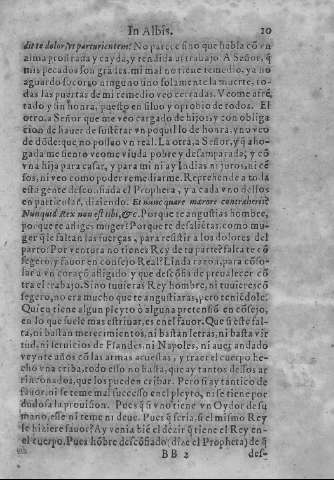 In Albis. 20
dit te dolor, vt parturientem? No parece sino que habla cõ vn
alma prostrada y cayda, y rendida al trabajo. A Señor, q̃
mis pecados son grãdes, mi mal no tiene remedio, ya no
aguardo socorro ninguno sino solamente la muerte, to-
das las puertas de mi remedio veo cerradas. Veome afrẽ
tado y sin honra, puesto en siluo y oprobio de todos. El
otro, a Señor que me veo cargado de hijos, y con obliga
cion de hauer de sustẽtar vn poquillo de honra, y no veo
de dõde: que no posseo vn real. La otra, a Señor, y q̃ a ho-
gada me siento veome viuda pobre y desamparada, y cõ
vna hija para casar, y para mi ni ay Indias ni juros, ni cẽ
sos, ni veo como poder remediarme. Reprehende a toda
esta gente desconfiada el Propheta, y a cada vno dellos
en particular, diziendo. Et nunc quare mœrore contraheris?
Nunquid Rex non est tibi, &c. Porque te angustias hombre,
porque te afliges muger? Porque te desalientas como mu-
ger que le faltan las fuerças, para resistir a los dolores del
parto? Por ventura no tienes Rey de tu parte? falta te cõ
segero, y fauor en consejo Real? Linda razon, para cõso-
lar a vn coraçõ afligido y que desconfia de preualecer cõ
tra el trabajo. Sino tuuieras Rey hombre, ni tuuieres cõ
segero, no era mucho que te angustiaras, pero teniẽdole.
Quien tiene algun pleyto o alguna pretensiõ en cõsejo,
en lo que suele mas estriuar, es en el fauor. Que si este fal-
ta, ni bastan merecimientos, ni bastan letras, ni basta vir
tud, ni seruicios de Flandes, ni Napoles, ni auer andado
veynte años cõ las armas acuestas, y traer el cuerpo he-
cho vna criba, todo esso no basta, que ay tantos dessos ar
rinconados, que los pueden cribar. Pero si ay tantico de
fauor, ni se teme mal sucesso en el pleyto, ni se tiene por
dudosa la prouision. Pues q̃ si vno tiene vn Oydor de su
mano, esse ni teme ni deue. Pues q̃ seria, si el mismo Rey
le hiziere fauor? Ay venia biẽ el dezir q̃ tiene el Rey en-
el cuerpo. Pues hõbre descõfiado (dize el Propheta) de q̃
BB 2 des-